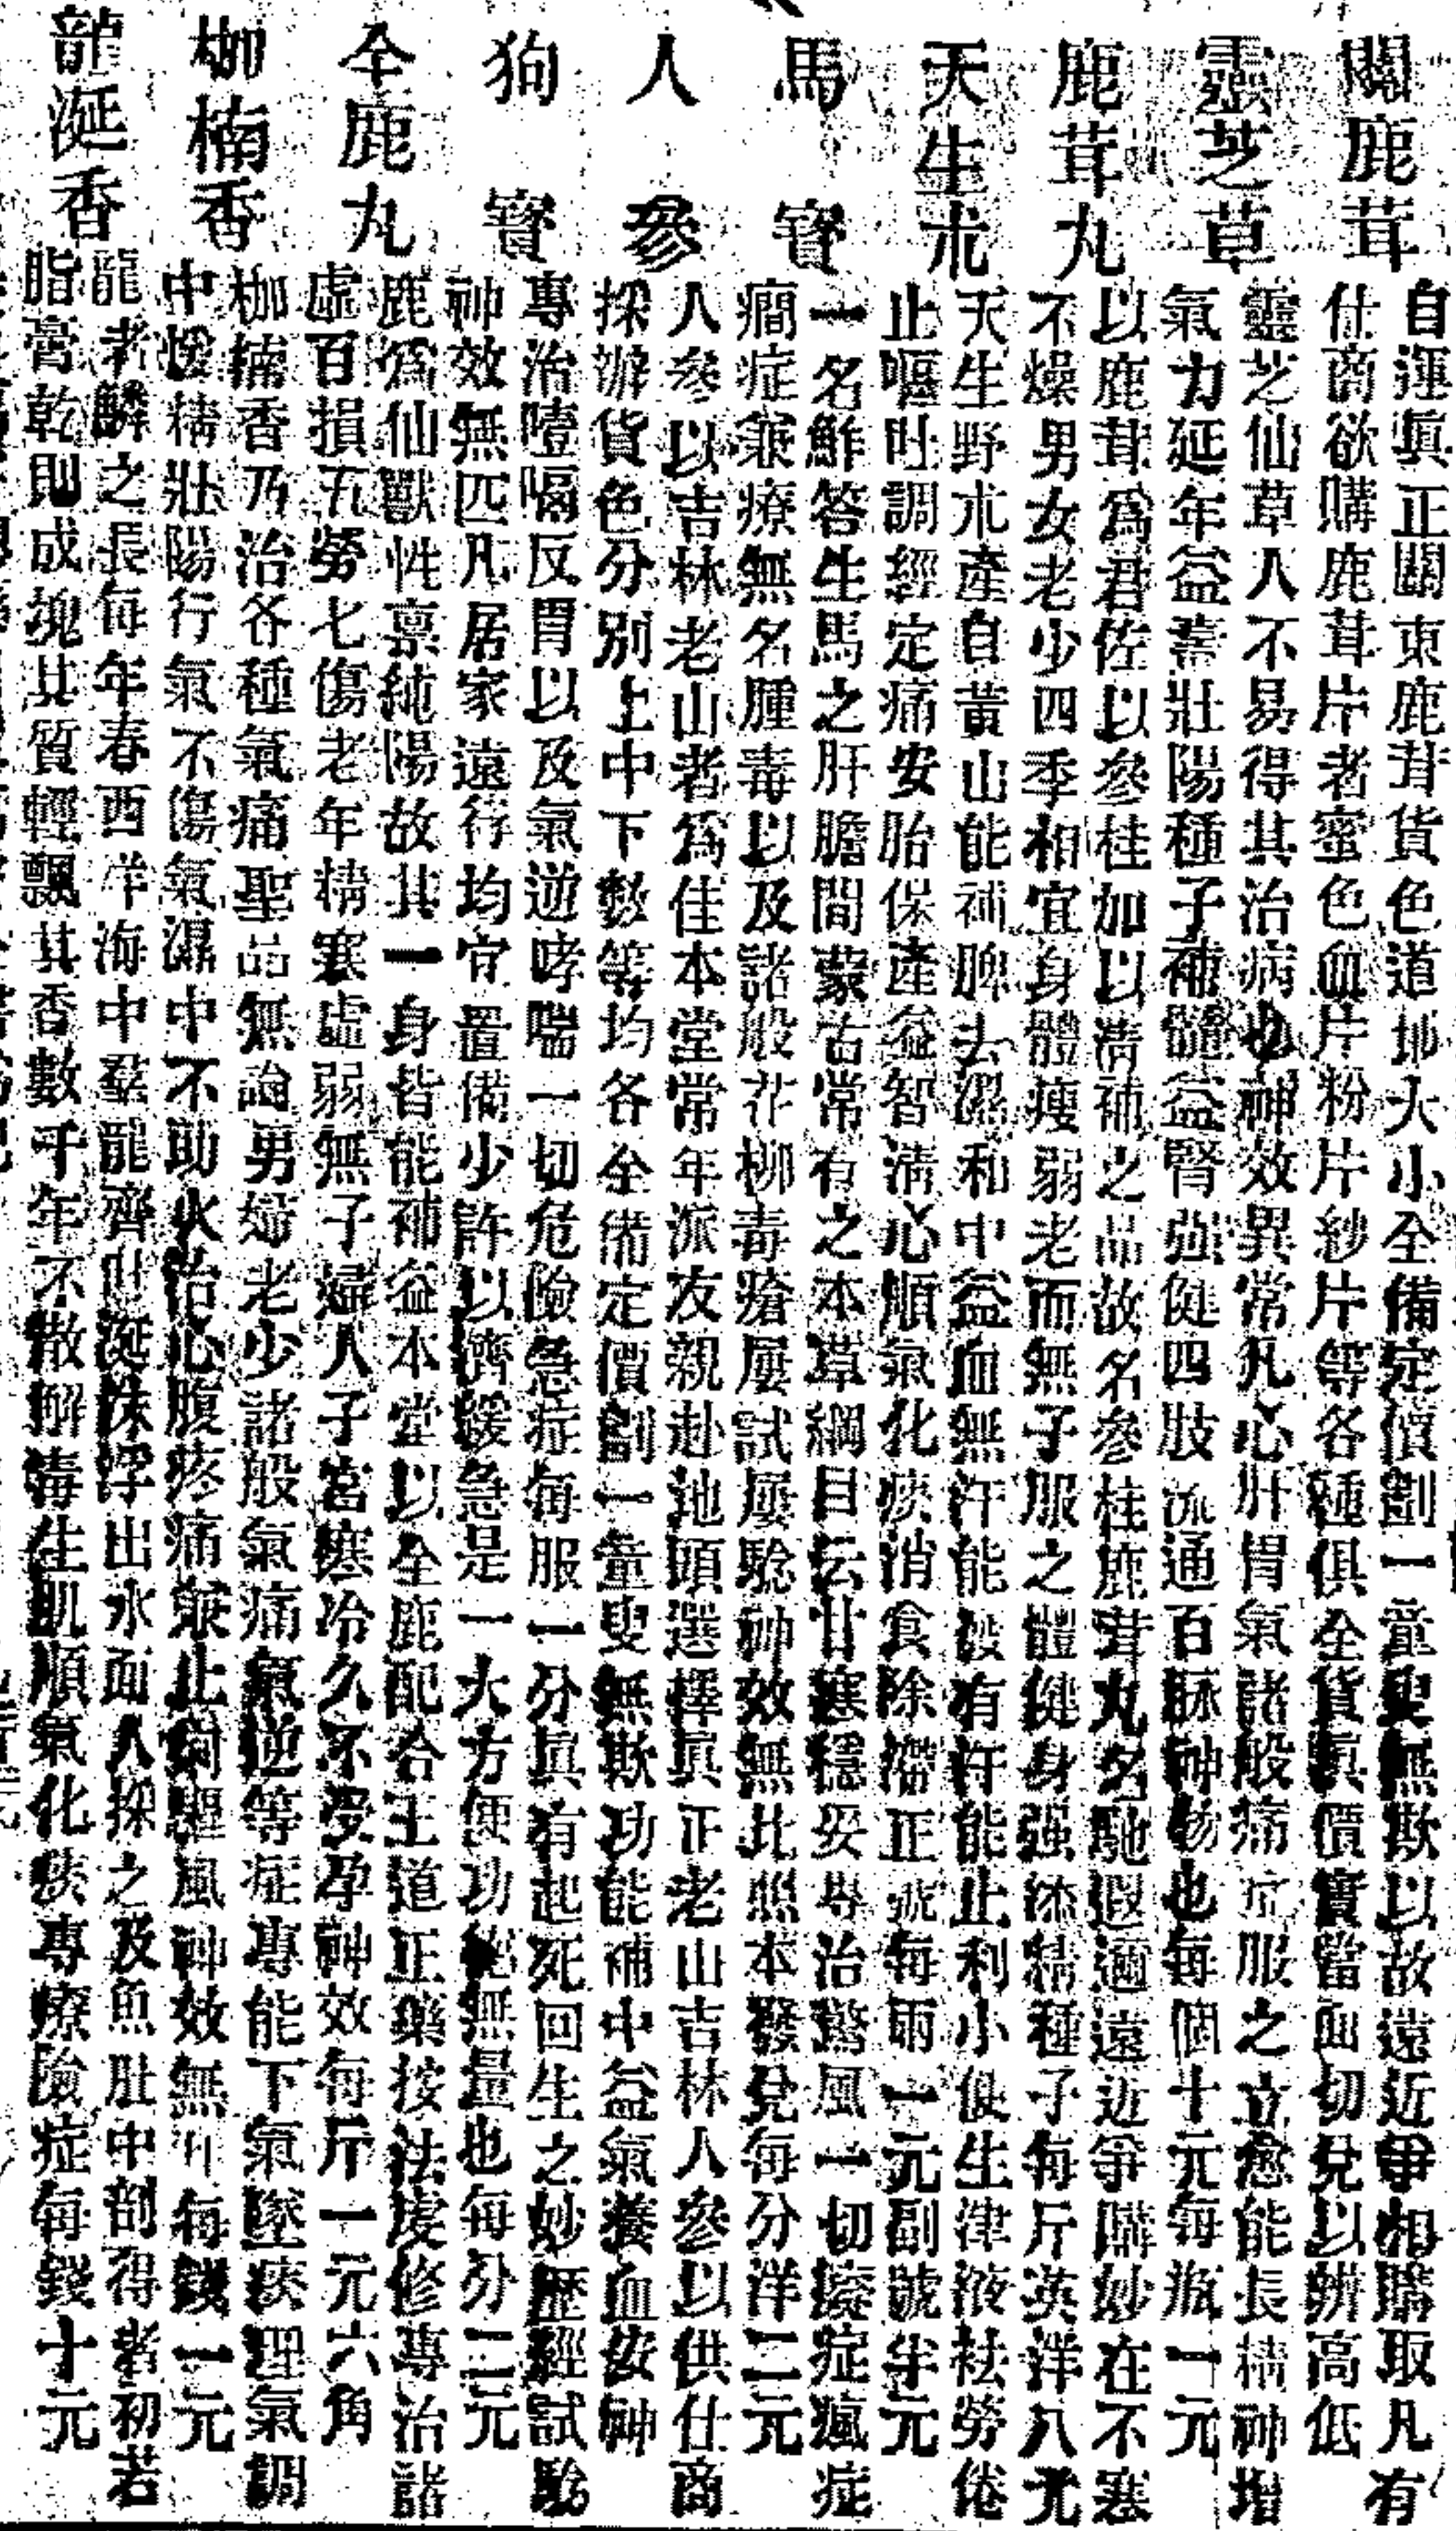 關鹿茸
自運眞正關東鹿茸貨色道地大小全備定價劃一童叟無欺以故遠近爭相購取凡有
仕商欲購鹿茸片者蜜色血片粉片紗片等各種俱全貨眞價實當面切兌以辨高低
靈芝草
靈芝仙草人不易得其治病也神效異常凡心肝胃氣諸般痛症服之立愈能長精神增
氣力延年益壽壯陽種子補髓益腎强健四肢流通百脉神物也每個十元每瓶一元
鹿茸丸
以鹿茸爲君佐以參桂加以淸補之品故名參桂鹿茸丸名馳遐邇遠近爭購妙在不寒
不燥男女老少四季相宜身體瘦弱老而無子服之體健身强添精種子每斤英洋八元
天生朮
天生野朮產自黃山能補脾去濕和中益血無汗能發有汗能止利小便生津液祛勞倦
止嘔吐調經定痛安胎保產益智淸心順氣化痰消食除滯正號每兩一元副號半元
馬寶
一名鮓答生馬之肝膽間蒙古常有之本草綱目云甘寒穩妥專治驚風一切痰症瘋症
癎症兼療無名腫毒以及諸般花柳毒瘡屢試屢驗神效無比照本發兌每分洋二元
人參
人參以吉林老山者爲佳本堂常年派友親赴地頭選擇眞正老山吉林人參以供仕商
採辦貨色分別上中下數等均各全備定價劃一童叟無欺功能補中益氣養血安神
狗寶
專治噎嗝反胃以及氣逆哮喘一切危險急症每服一分眞有起死回生之妙歷經試驗
神效無匹凡居家遠行均宜置備少許以濟緩急是一大方便功德無量也每分二元
全鹿丸
鹿爲仙獸性稟純陽故其一身皆能補益本堂以全鹿配合王道正藥按法虔修專治諸
虛百損五勞七傷老年精寒虛弱無子婦人子宮寒冷久不受孕神效每斤一元六角
枷楠香
枷楠香乃治各種氣痛聖品無論男婦老少諸般氣痛氣逆等症專能下氣墜痰理氣調
中煖精壯陽行氣不傷氣濕中不助火治心腹疼痛兼止痢驅風神效無比每錢一元
龍涎香
龍者鱗之長每年春西洋海中羣龍齊吐涎沫浮出水面人採之及魚肚中剖得者初若
脂膏乾則成塊其質輕飄其香數千年不散解毒生肌順氣化痰專療險症每錢十元